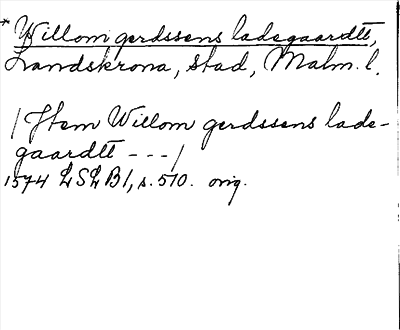 * Willom gerdssens ladegaardtt,
Landskrona, stad, Malm. l.
/ Jtem Willom gerdssens lade-
gaardtt - - - /
1574 LSLB 1, s. 510. orig.